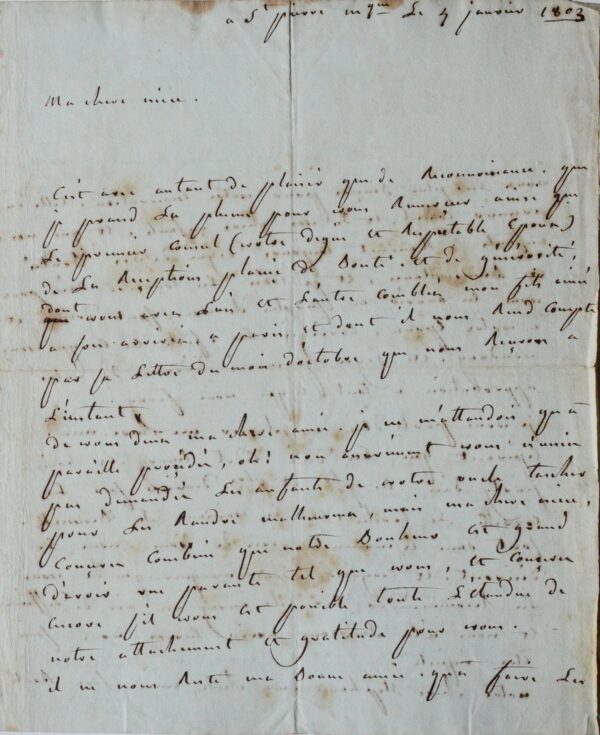 a St pierre mque Le 4 janvier 1803
Ma chere niece.
C'est avec autant de plaisir que de Reconnoissance, que
je prend La plume pour vous Remercier ainsi que
Le premier Consul (votre digne et Respectable Epoux)
de La Reception plaine de Bonté et de générosité,
dont vous avez L'un et L'autre comblés mon fils ainé
a son arrivée a paris et dont il nous Rend Compte
par sa Lettre du mois d'octobre que nous Reçevons a
L'instant
de vous deux ma chere amie. je m'attendois qu'à
pareille procédée, oh! non assurement vous n'aviez
pas demandée Les enfants de votre oncle tascher
pour Les Randre malheureux, mais ma chere niece,
Conçevez Combien que notre Bonheur est grand
d'avoir une parente tel que vous, et Conçevez
encore s'il vous est possible toute L'étandue de
notre attachement et gratitude pour vous.
il ne nous Reste ma Bonne amie qu'a faire Les